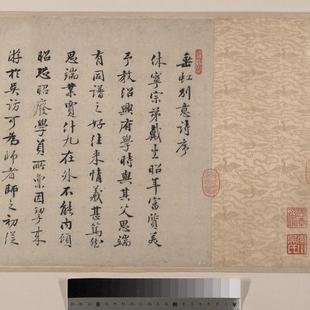 垂虹別意詩序
休寧宗弟戴生昭年富質美
予教紹興府學時與其父思端
有同譜之好往来情義甚篤
思端業賈什九在外不能内顧
昭恐昭廢學負所樂因挈来
游於吳訪可為師者師之初從